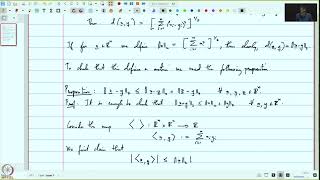 Then d(x,y) = [ Σ_{i=1}^{n} (x_i - y_i)² ]^{1/2}
If for x ∈ ℝⁿ we define ‖x‖₂ = [ Σ_{i=1}^{n} x_i² ]^{1/2}, then clearly, d(x,y) = ‖x-y‖₂.
To check that this defines a metric we need the following proposition.
Proposition: ‖x-y‖₂ ≤ ‖x-z‖₂ + ‖z-y‖₂ ∀ x,y,z ∈ ℝⁿ.
Proof: It is enough to check that ‖x-y‖₂ ≤ ‖x‖₂ + ‖y‖₂ ∀ x,y ∈ ℝⁿ.
Consider the map ⟨ ⟩ : ℝⁿ × ℝⁿ → ℝ
⟨x,y⟩ := Σ_{i=1}^{n} x_i y_i
We first claim that
|⟨x,y⟩| ≤ ‖x‖₂ ‖y‖₂